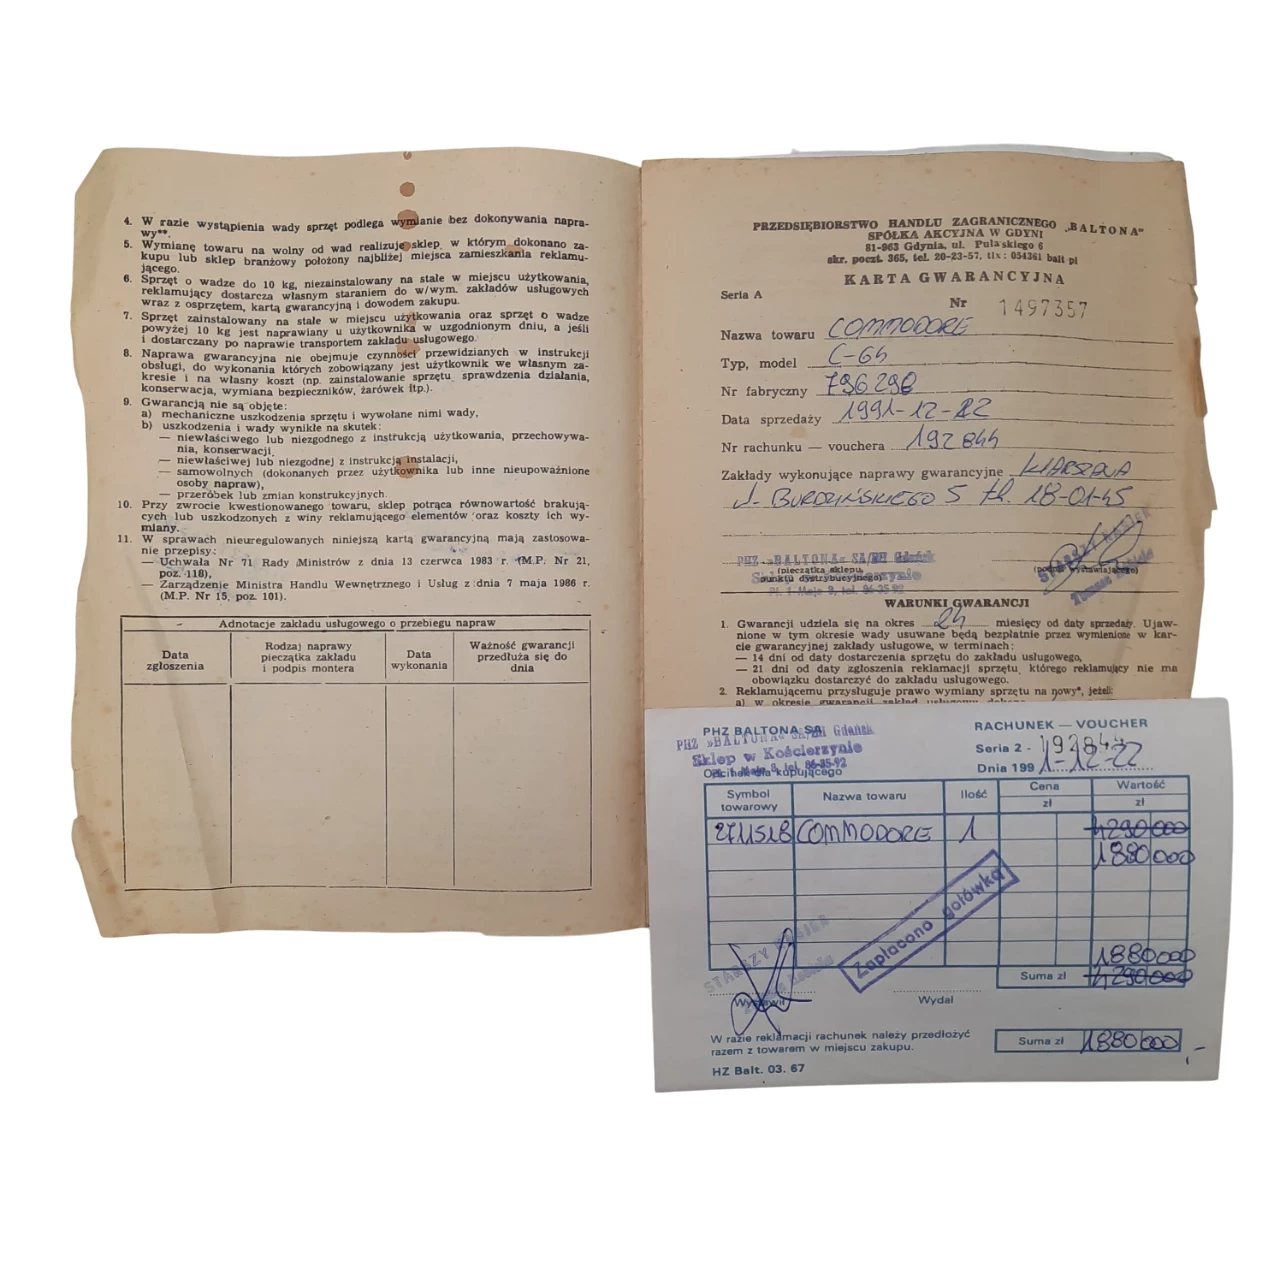 4. W razie wystąpienia wady sprzęt podlega wymianie bez dokonywania napra-
wy**.
5. Wymianę towaru na wolny od wad realizuje sklep, w którym dokonano za-
kupu lub sklep branżowy położony najbliżej miejsca zamieszkania reklamu-
jącego.
6. Sprzęt o wadze do 10 kg, niezainstalowany na stałe w miejscu użytkowania,
reklamujący dostarcza własnym staraniem do w/wym. zakładów usługowych
wraz z osprzętem, kartą gwarancyjną i dowodem zakupu.
7. Sprzęt zainstalowany na stałe w miejscu użytkowania oraz sprzęt o wadze
powyżej 10 kg jest naprawiany u użytkownika w uzgodnionym dniu, a jeśli
i dostarczany po naprawie transportem zakładu usługowego.
8. Naprawa gwarancyjna nie obejmuje czynności przewidzianych w instrukcji
obsługi, do wykonania których zobowiązany jest użytkownik we własnym za-
kresie i na własny koszt (np. zainstalowanie sprzętu, sprawdzenia działania,
konserwacja, wymiana bezpieczników, żarówek itp.).
9. Gwarancją nie są objęte:
a) mechaniczne uszkodzenia sprzętu i wywołane nimi wady,
b) uszkodzenia i wady wynikłe na skutek:
— niewłaściwego lub niezgodnego z instrukcją użytkowania, przechowywa-
nia, konserwacji,
— niewłaściwej lub niezgodnej z instrukcją instalacji,
— samowolnych (dokonanych przez użytkownika lub inne nieupoważnione
osoby napraw),
— przeróbek lub zmian konstrukcyjnych.
10. Przy zwrocie kwestionowanego towaru, sklep potrąca równowartość brakują-
cych lub uszkodzonych z winy reklamującego elementów oraz koszty ich wy-
miany.
11. W sprawach nieuregulowanych niniejszą kartą gwarancyjną mają zastosowa-
nie przepisy:
— Uchwała Nr 71 Rady Ministrów z dnia 13 czerwca 1983 r. (M.P. Nr 21,
poz. 118),
— Zarządzenie Ministra Handlu Wewnętrznego i Usług z dnia 7 maja 1986 r.
(M.P. Nr 15, poz. 101).
Adnotacje zakładu usługowego o przebiegu napraw
Data zgłoszenia
Rodzaj naprawy pieczątka zakładu i podpis montera
Data wykonania
Ważność gwarancji przedłuża się do dnia
PRZEDSIĘBIORSTWO HANDLU ZAGRANICZNEGO „BALTONA"
SPÓŁKA AKCYJNA W GDYNI
81-963 Gdynia, ul. Pułaskiego 6
skr. poczt. 365, tel. 20-23-57, tlx: 054361 balt pl
KARTA GWARANCYJNA
Seria A
Nr 1497357
Nazwa towaru COMMODORE
Typ, model C-64
Nr fabryczny 796298
Data sprzedaży 1991-12-22
Nr rachunku — vouchera 192844
Zakłady wykonujące naprawy gwarancyjne WARSZAWA
BURDZIŃSKIEGO 5 tel. 18-01-45
PHZ »BALTONA« SA/BH Gdańsk
(pieczątka sklepu,
Sklep w Kościerzynie
punktu dystrybucyjnego)
Pl. 1 Maja 8, tel. 86-35-92
(podpis wystawiającego)
STARSZY KASJER
WARUNKI GWARANCJI
1. Gwarancji udziela się na okres 24 miesięcy od daty sprzedaży. Ujaw-
nione w tym okresie wady usuwane będą bezpłatnie przez wymienione w kar-
cie gwarancyjnej zakłady usługowe, w terminach:
— 14 dni od daty dostarczenia sprzętu do zakładu usługowego,
— 21 dni od daty zgłoszenia reklamacji sprzętu, którego reklamujący nie ma
obowiązku dostarczyć do zakładu usługowego.
2. Reklamującemu przysługuje prawo wymiany sprzętu na nowy*, jeżeli:
a) w okresie gwarancji zakład usługowy
PHZ BALTONA SA
PHZ »BALTONA« SA/BH Gdańsk
Sklep w Kościerzynie
Pl. 1 Maja 8, tel. 86-35-92
Odcinek dla kupującego
RACHUNEK — VOUCHER
Seria 2 - 192844
Dnia 1991-12-22
Symbol towarowy
Nazwa towaru
Ilość
Cena zł
Wartość zł
2711518 COMMODORE 1 4290000
1880000
1880000
Suma zł 4290000
Zapłacono gotówką
STARSZY KASJER
Wystawił
Wydał
W razie reklamacji rachunek należy przedłożyć
razem z towarem w miejscu zakupu.
Suma zł 1880000,-
HZ Balt. 03. 67